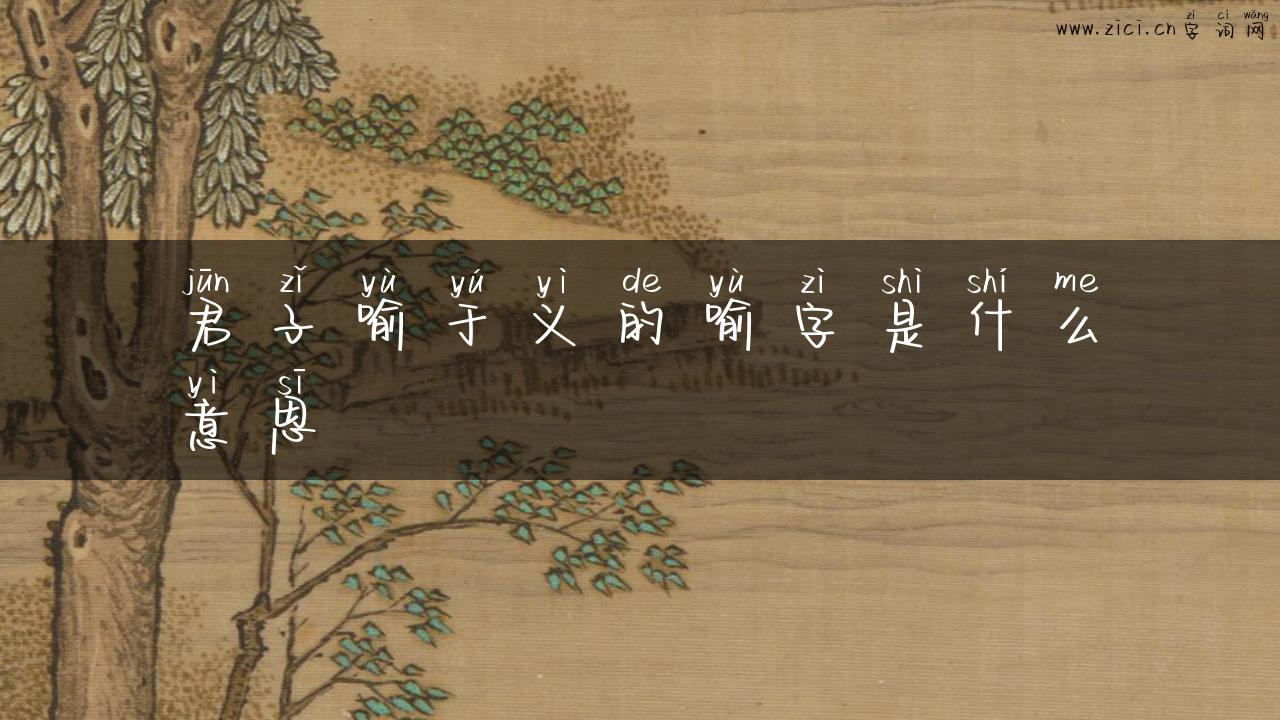 zì cí wǎng
www.zici.cn 字 词 网
jūn zǐ yù yú yì de yù zì shì shí me
君 子 喻 于 义 的 喻 字 是 什 么
yì sī
意 思